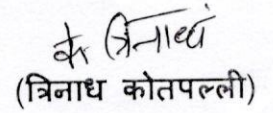 के त्रिनाध
(त्रिनाध कोतपल्ली)